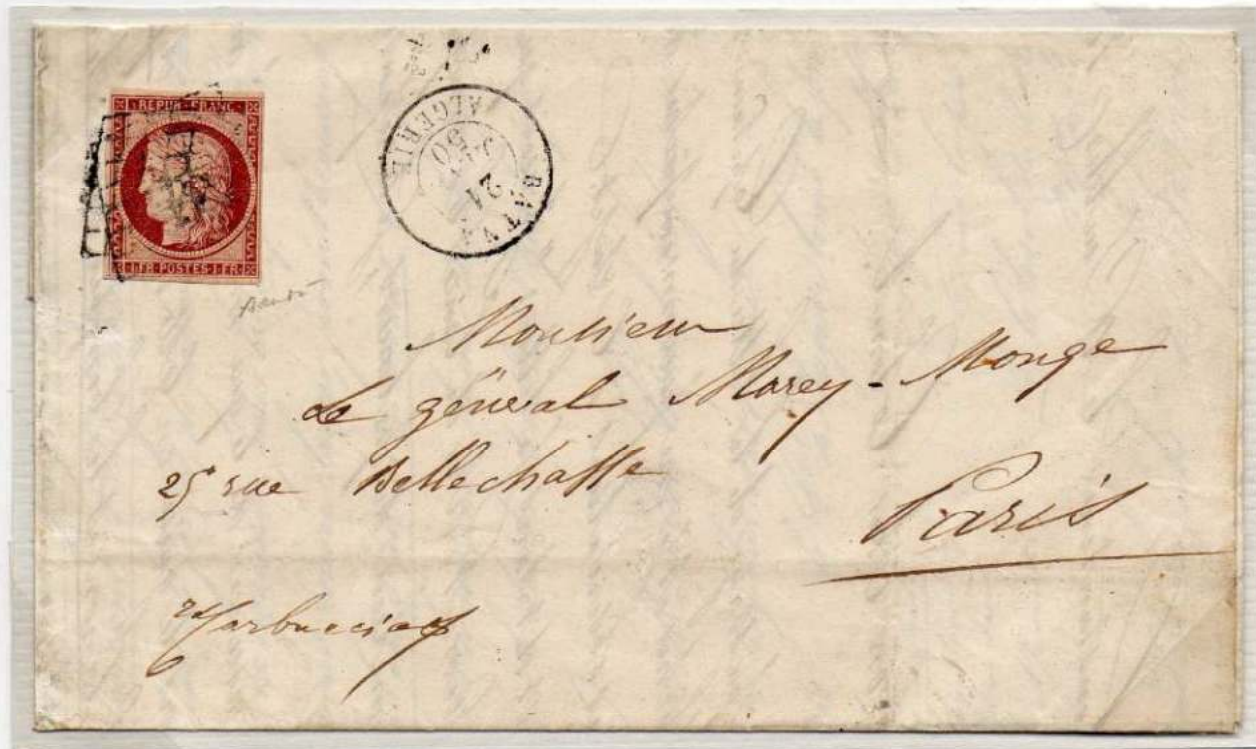 REPUB. FRANC.
1 FR · POSTES · 1 FR
BATNA
21
50
ALGERIE
Monsieur
Le général Marey - Monge
25 rue Bellechasse
Paris